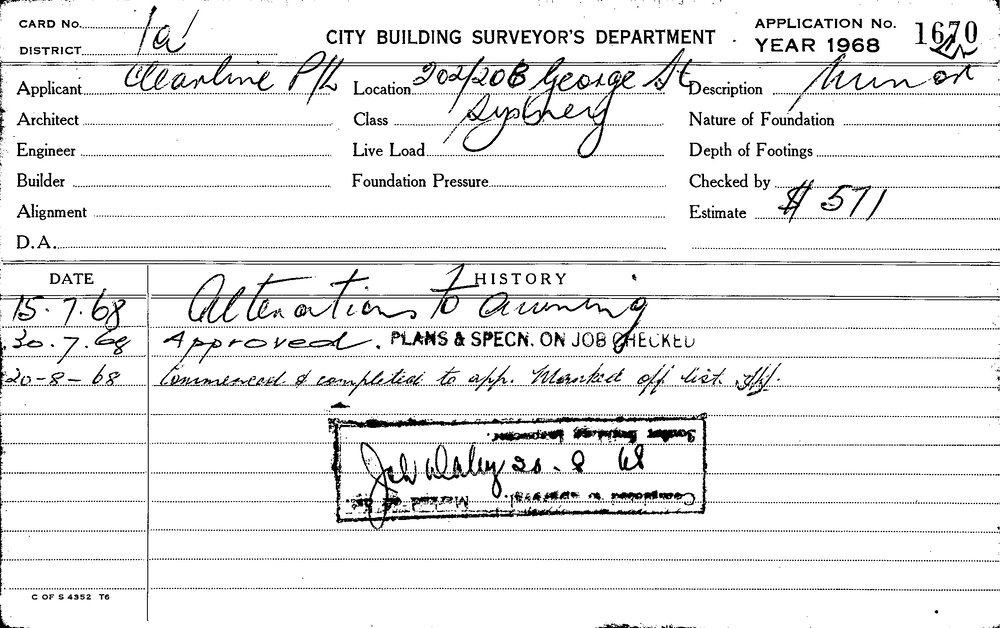 CARD No. 1a
DISTRICT
CITY BUILDING SURVEYOR'S DEPARTMENT
APPLICATION No. 1670
YEAR 1968
Applicant Clearline P/L Location 202/208 George St Description Minor
Sydney
Architect Class Nature of Foundation
Engineer Live Load Depth of Footings
Builder Foundation Pressure Checked by
Alignment Estimate $ 571
D.A.
DATE HISTORY
15.7.68 Alterations to awning
30.7.68 Approved. PLANS & SPECN. ON JOB CHECKED
20-8-68 Commenced & completed to app. Marked off list.
Senior Building Inspector.
20.8.68
Completion to approval. Marked off list.
C OF S 4352 T6